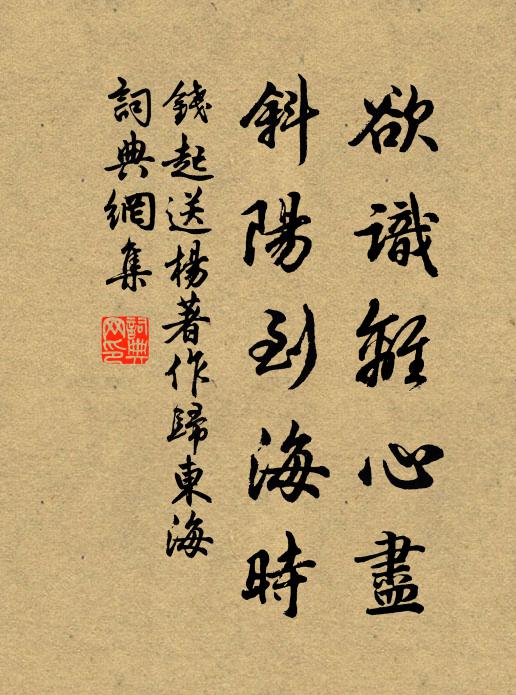 欲識離心盡
斜陽到海時
錢起送楊著作歸東海
詞典網集
詞典
网印